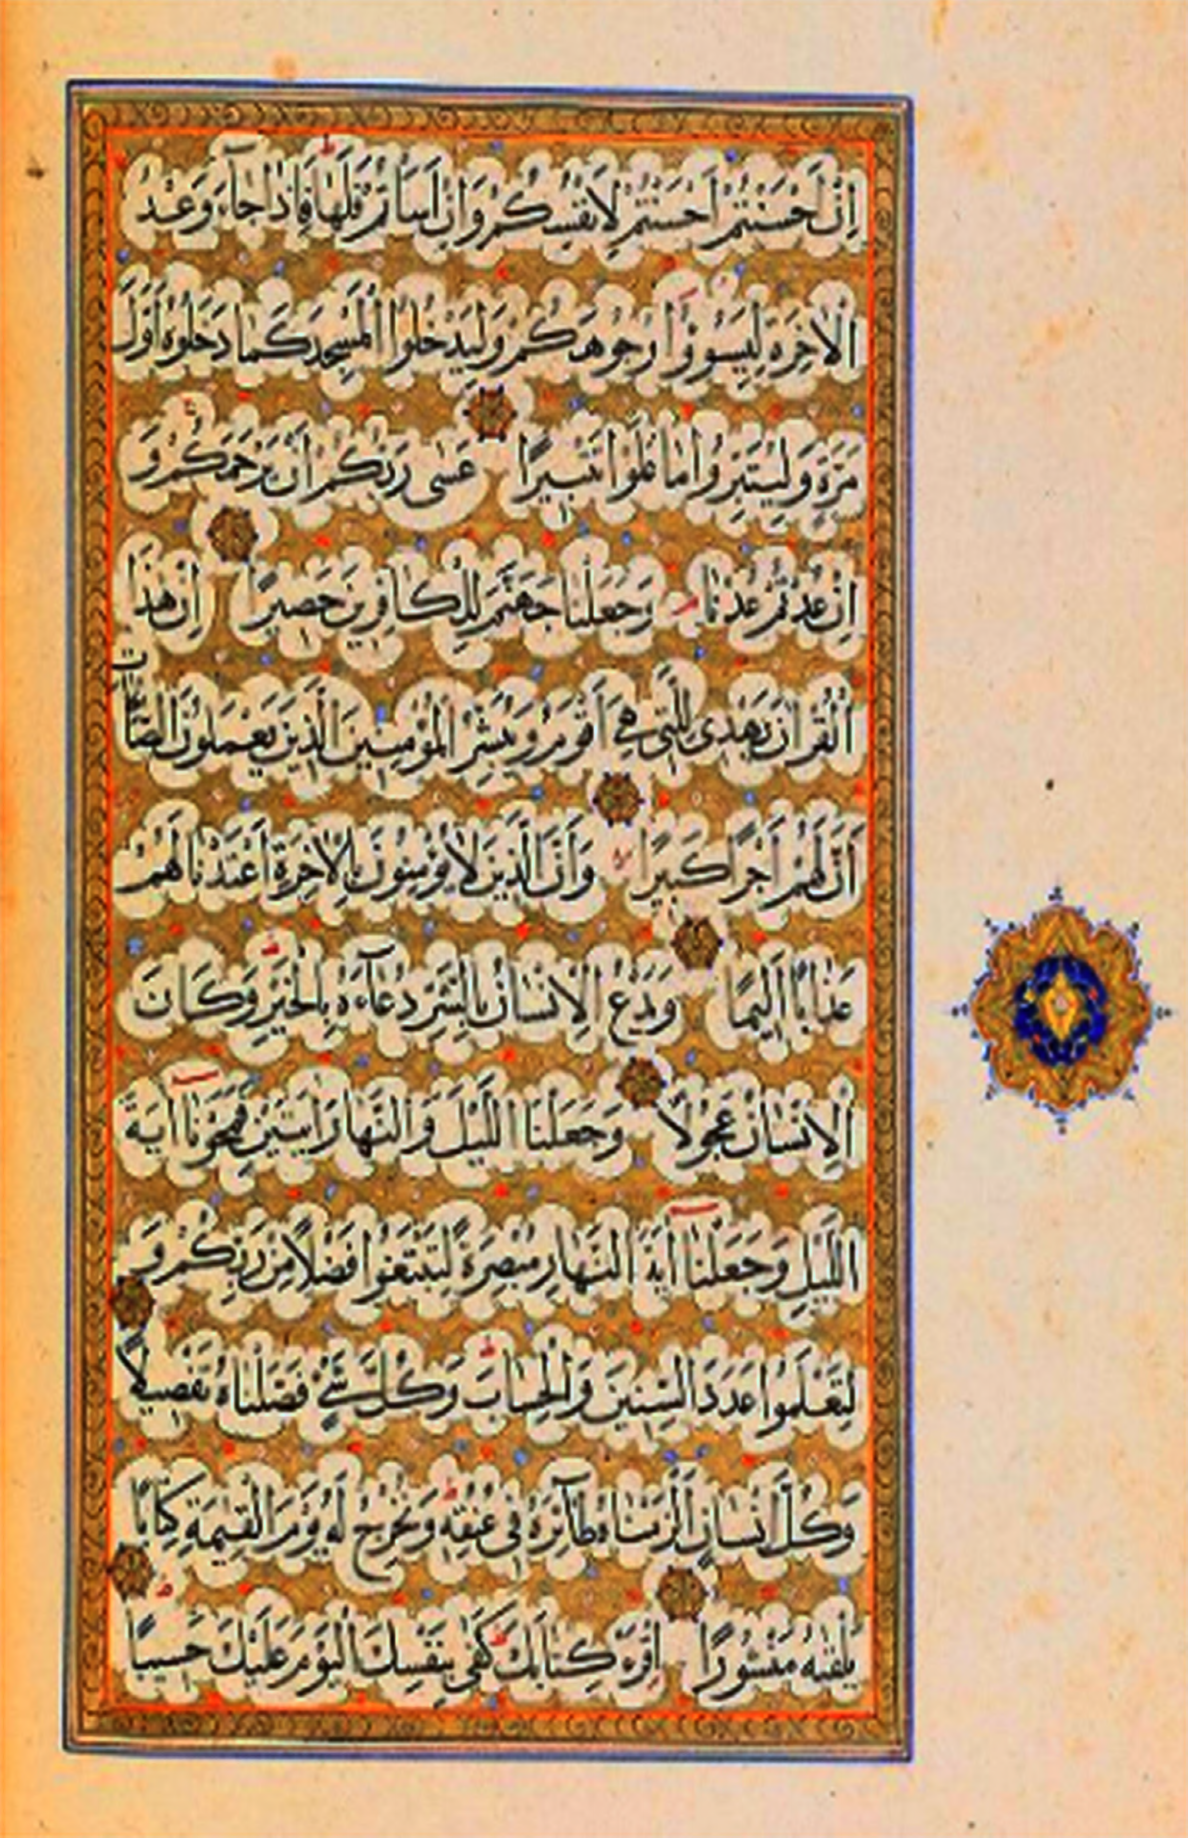 اِنْ اَحْسَنْتُمْ اَحْسَنْتُمْ لِاَنْفُسِكُمْ وَاِنْ اَسَاْتُمْ فَلَهَا فَاِذَا جَآءَ وَعْدُ
الْاٰخِرَةِ لِيَسُوءُٓوا وُجُوهَكُمْ وَلِيَدْخُلُوا الْمَسْجِدَ كَمَا دَخَلُوهُ اَوَّلَ
مَرَّةٍ وَلِيُتَبِّرُوا مَا عَلَوْا تَتْبِيرًا عَسٰى رَبُّكُمْ اَنْ يَرْحَمَكُمْ وَ
اِنْ عُدْتُمْ عُدْنَا وَجَعَلْنَا جَهَنَّمَ لِلْكَافِرِينَ حَصِيرًا اِنَّ هٰذَا
الْقُرْاٰنَ يَهْدِى لِلَّتِى هِىَ اَقْوَمُ وَيُبَشِّرُ الْمُؤْمِنِينَ الَّذِينَ يَعْمَلُونَ الصَّالِحَاتِ
اَنَّ لَهُمْ اَجْرًا كَبِيرًا وَاَنَّ الَّذِينَ لَا يُؤْمِنُونَ بِالْاٰخِرَةِ اَعْتَدْنَا لَهُمْ
عَذَابًا اَلِيمًا وَيَدْعُ الْاِنْسَانُ بِالشَّرِّ دُعَآءَهُ بِالْخَيْرِ وَكَانَ
الْاِنْسَانُ عَجُولًا وَجَعَلْنَا اللَّيْلَ وَالنَّهَارَ اٰيَتَيْنِ فَمَحَوْنَا اٰيَةَ
اللَّيْلِ وَجَعَلْنَا اٰيَةَ النَّهَارِ مُبْصِرَةً لِتَبْتَغُوا فَضْلًا مِنْ رَبِّكُمْ وَ
لِتَعْلَمُوا عَدَدَ السِّنِينَ وَالْحِسَابَ وَكُلَّ شَىْءٍ فَصَّلْنَاهُ تَفْصِيلًا
وَكُلَّ اِنْسَانٍ اَلْزَمْنَاهُ طَآئِرَهُ فِى عُنُقِهِ وَنُخْرِجُ لَهُ يَوْمَ الْقِيٰمَةِ كِتَابًا
يَلْقٰيهُ مَنْشُورًا اِقْرَأْ كِتَابَكَ كَفٰى بِنَفْسِكَ الْيَوْمَ عَلَيْكَ حَسِيبًا